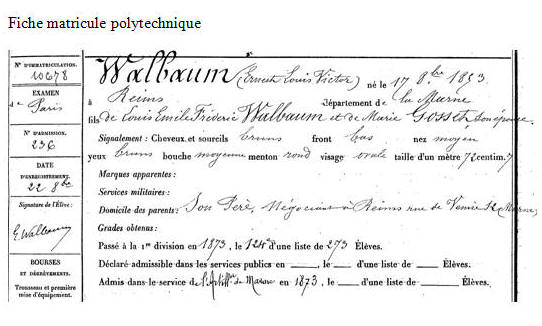 Fiche matricule polytechnique
N° D'IMMATRICULATION.
10678
EXAMEN
de Paris
N° D'ADMISSION.
236
DATE
D'ENREGISTREMENT.
22 8bre
Signature de l'Élève :
E. Walbaum
BOURSES
ET DÉGRÈVEMENTS.
Trousseau et première
mise d'équipement.
Walbaum (Ernest Louis Victor) né le 17 8bre 1853
à Reims Département de la Marne
fils de Louis Emile Fréderic Walbaum et de Marie Gosset son épouse.
Signalement : Cheveux et sourcils bruns front bas nez moyen
yeux bruns bouche moyenne menton rond visage ovale taille d'un mètre 72 centim.
Marques apparentes :
Services militaires :
Domicile des parents : Son Père, Négociant à Reims rue de Venise 12 (Marne)
Grades obtenus :
Passé à la 1re division en 1873, le 124e d'une liste de 273 Élèves.
Déclaré admissible dans les services publics en ___, le ___ d'une liste de ___ Élèves.
Admis dans le service de l'Artillie de Marine en 1873, le ___ d'une liste de ___ Élèves.